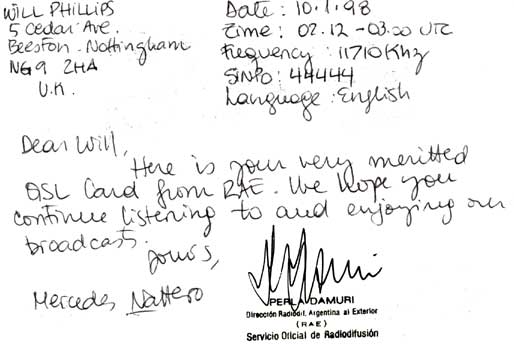 WILL PHILLIPS
5 Cedar Ave.
Beeston - Nottingham
NG9 2HA
U.K.
Date: 10.1.98
Time: 02.12 - 03.00 UTC
Frequency: 11710 KHz
SINPO: 44444
Language: English
Dear Will,
Here is your very meritted
QSL Card from RAE. We hope you
continue listening to and enjoying our
broadcasts.
Yours,
Mercedes Nattero
PERLA DAMURI
Dirección Radiodif. Argentina al Exterior
(RAE)
Servicio Oficial de Radiodifusión